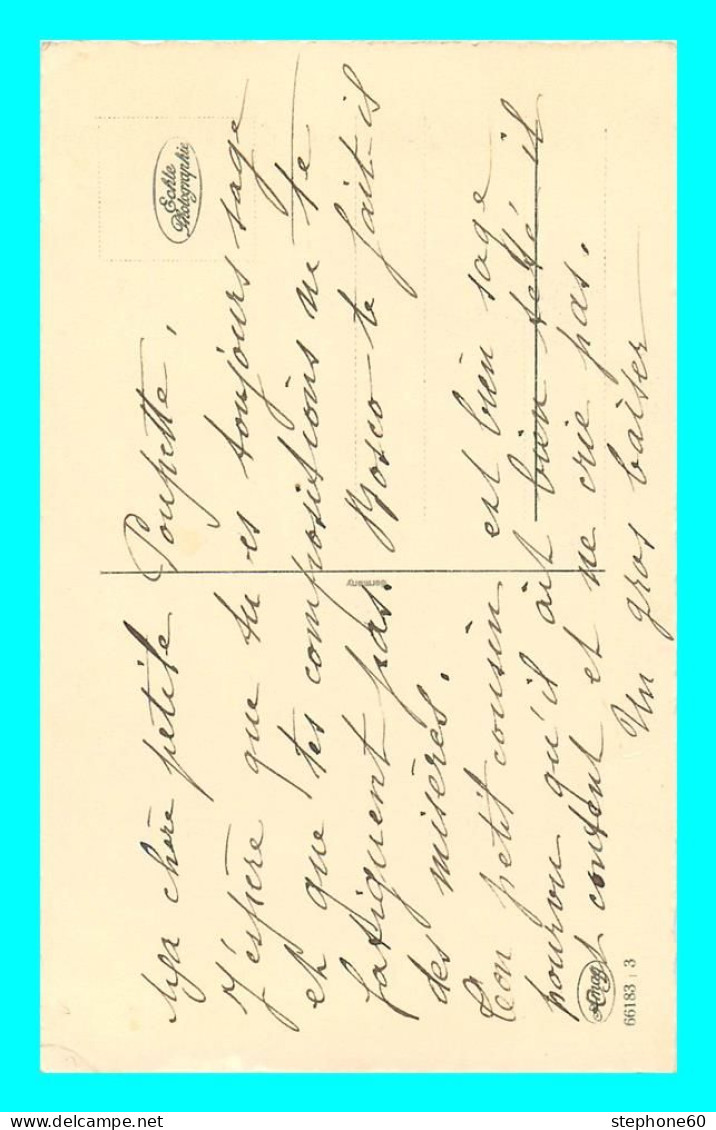 Ma chère petite Poupette,
J'espère que tu es toujours sage
et que tes compositions ne te
fatiguent pas. Bosco te fait-il
des misères.
Ton petit cousin est bien sage
pourvu qu'il ait bien tété il
est content et ne crie pas.
Un gros baiser
Echte
Photographie
Germany
Amag
66183 | 3
stephome60